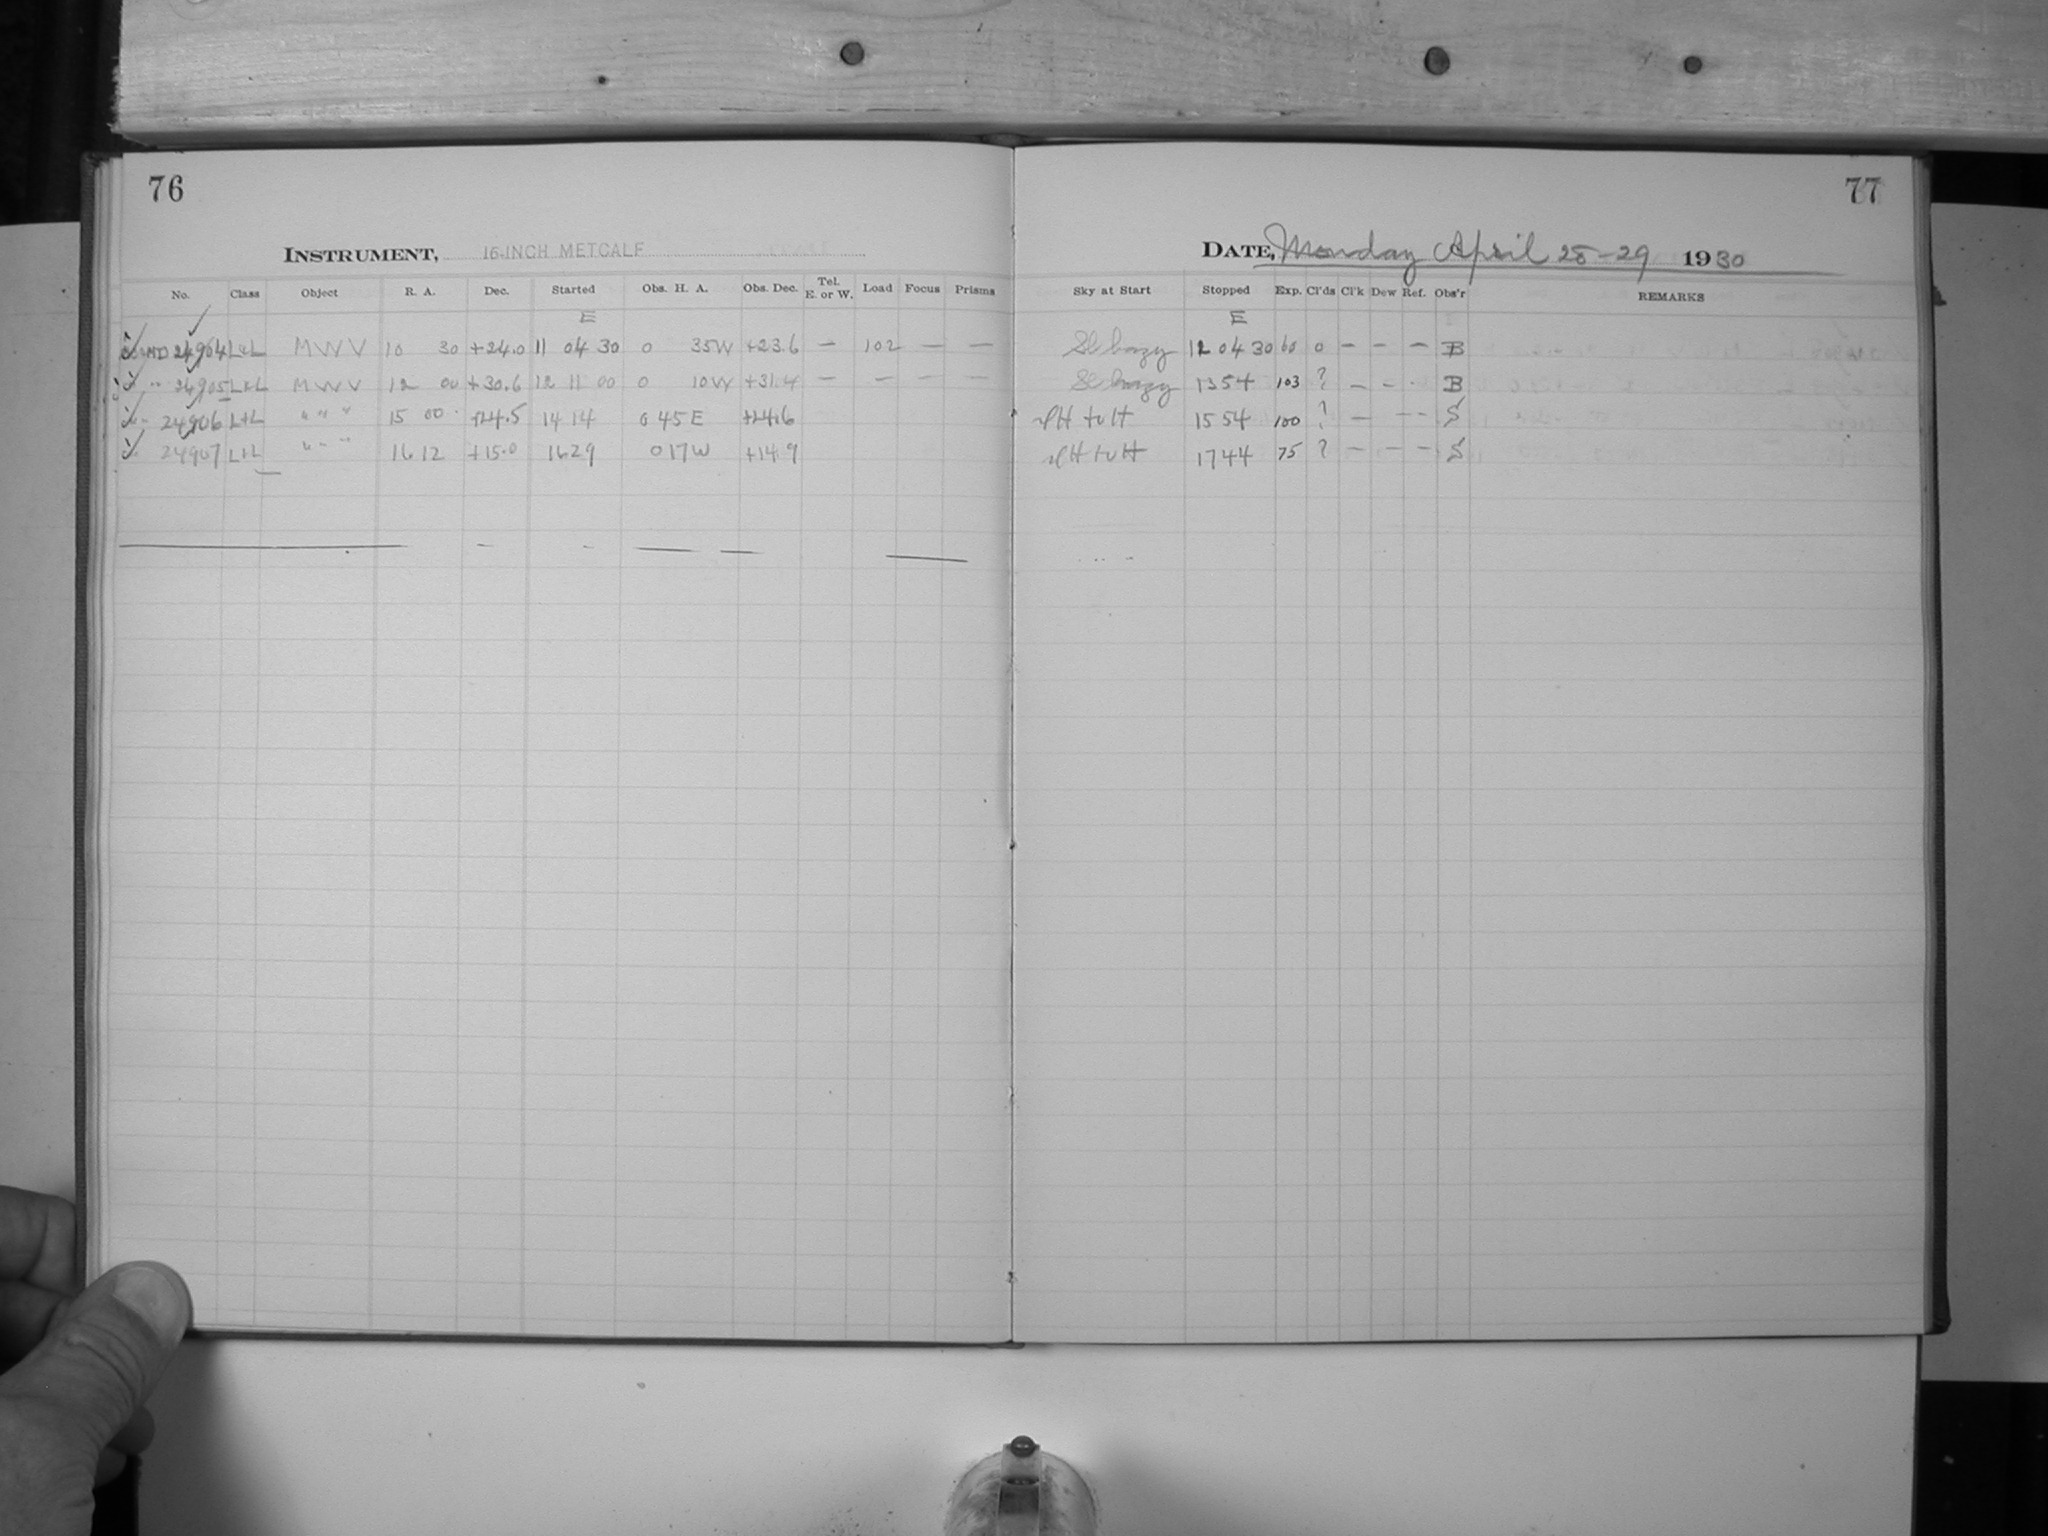 76
INSTRUMENT, 16-INCH METCALF
No. Class Object R. A. Dec. Started Obs. H. A. Obs. Dec. Tel. E. or W. Load Focus Prisms
E
24904 L+L MWV 10 30 +24.0 11 04 30 0 35W +23.6 — 102 — —
" 24905 L+L MWV 12 00 +30.6 12 11 00 0 10W +31.4 — — — —
24906 L+L " " " 15 00 +24.5 14 14 0 45 E +24.6
24907 L+L " " " 16 12 +15.0 1629 0 17 W +14.9
77
DATE, Monday April 28-29 1930
Sky at Start Stopped Exp. Cl'ds Cl'k Dew Ref. Obs'r REMARKS
E
Sl hazy 12 04 30 60 0 — — — B
Sl hazy 1354 103 ? — — - B
1554 100 ? — -- S
1744 75 ? — — — S